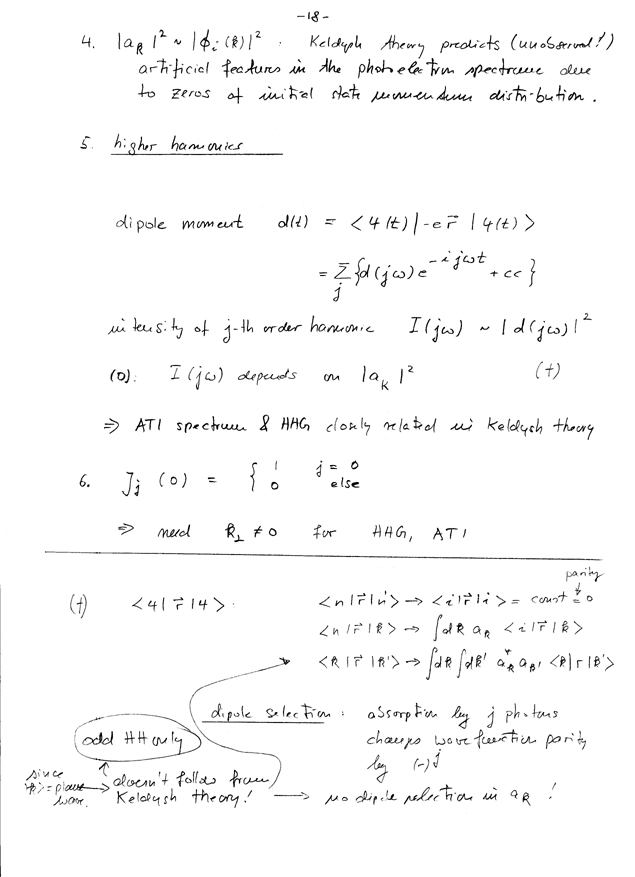 -18-
4. |a_k|² ~ |ϕ_i(k)|² : Keldysh theory predicts (unobserved!)
artificial features in the photoelectron spectrum due
to zeros of initial state momentum distribution.
5. higher harmonics
dipole moment d(t) = <ψ(t)|-e r⃗ |ψ(t)>
= Σ_j {d(jω)e^{-ijωt} + cc}
intensity of j-th order harmonic I(jω) ~ |d(jω)|²
(0): I(jω) depends on |a_k|² (†)
⇒ ATI spectrum & HHG closely related in Keldysh theory
6. J_j (0) = { 1 j = 0
0 else
⇒ need k_⊥ ≠ 0 for HHG, ATI
parity
(†) <ψ| r⃗ |ψ> : <n|r⃗|n'> → <i|r⃗|i> = const = 0
<n|r⃗|k> → ∫dk a_k <i|r⃗|k>
<k|r⃗|k'> → ∫dk ∫dk' a_k^* a_k' <k|r|k'>
dipole selection : absorption by j photons
odd HH only changes wavefunction parity
by (-)^j
since |k> = plane wave. → doesn't follow from
Keldysh theory! → no dipole selection in a_k !